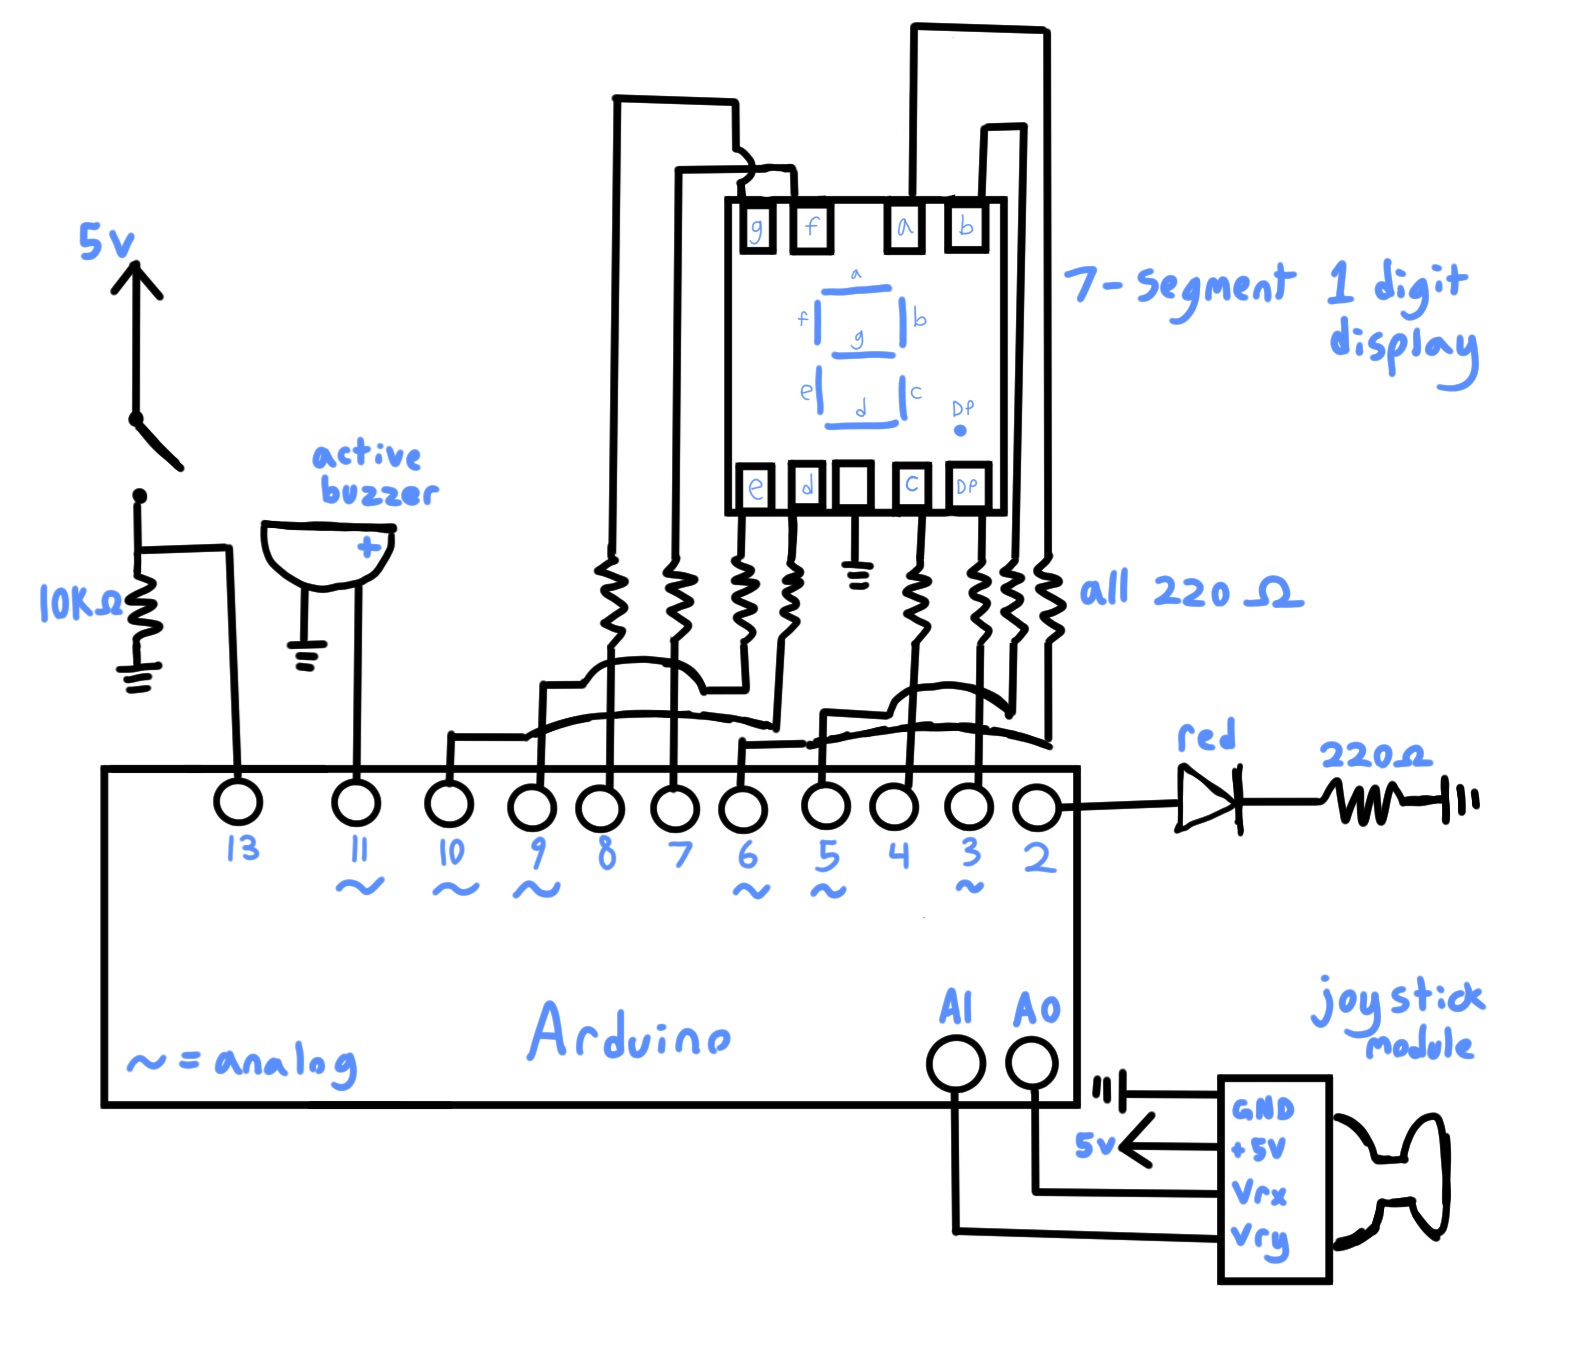 5v
10KΩ
active
buzzer
+
g f a b
a
f b
g
e c
d
DP
e d c DP
7-segment 1 digit
display
all 220 Ω
red
220Ω
13 11 10 9 8 7 6 5 4 3 2
~ ~ ~ ~ ~ ~
A1 A0
Arduino
~ = analog
joystick
module
GND
5v
+5V
Vrx
Vry